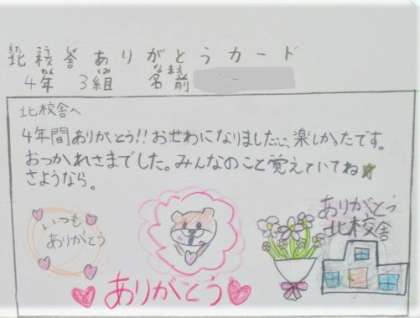 北校舎ありがとうカード
4年 3組 名前
北校舎へ
4年間ありがとう!!おせわになりました…、楽しかったです。
おつかれさまでした。みんなのこと覚えていてね★
さようなら。
いつも
ありがとう
ありがとう
北校舎
ありがとう